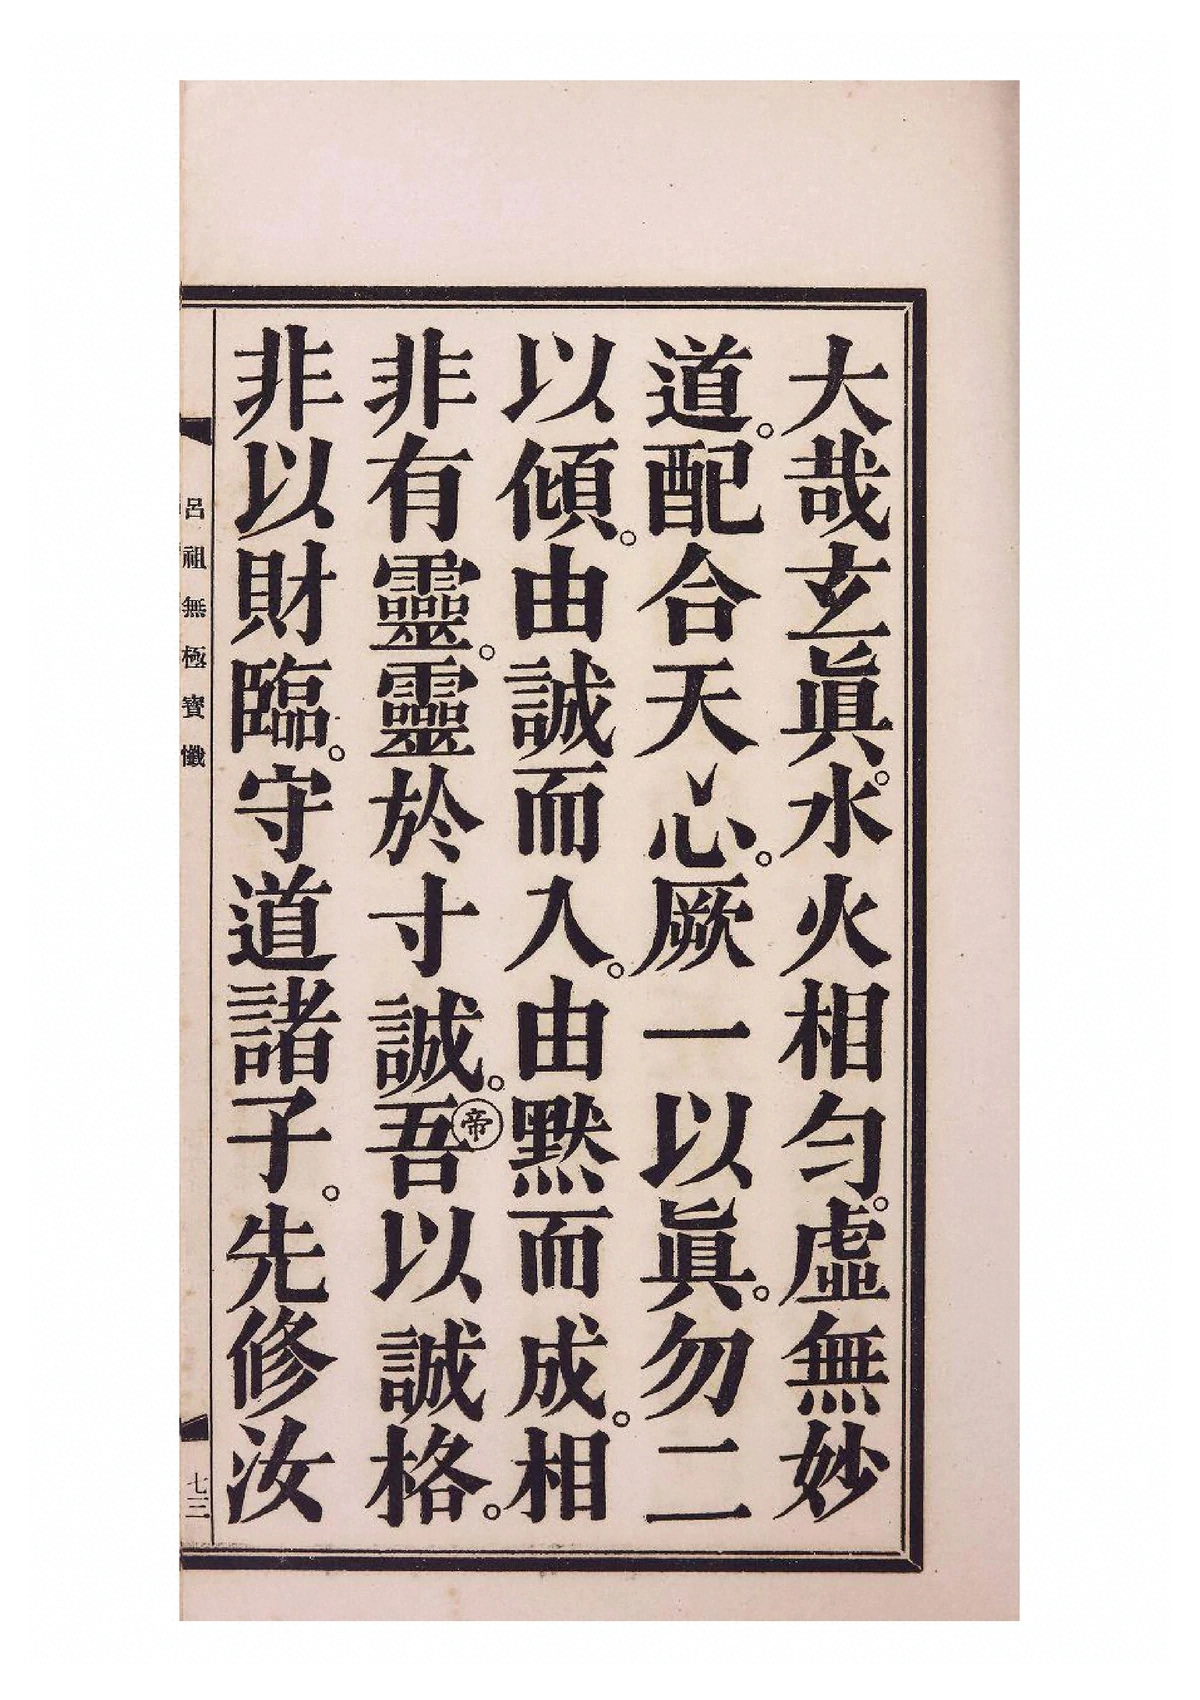 大哉玄眞。水火相勻。虛無妙
道。配合天心。厥一以眞。勿二
以傾。由誠而入。由默而成。相
非有靈。靈於寸誠。㊞吾以誠格。
非以財臨。守道諸子。先修汝
呂祖無極寶懺
七三